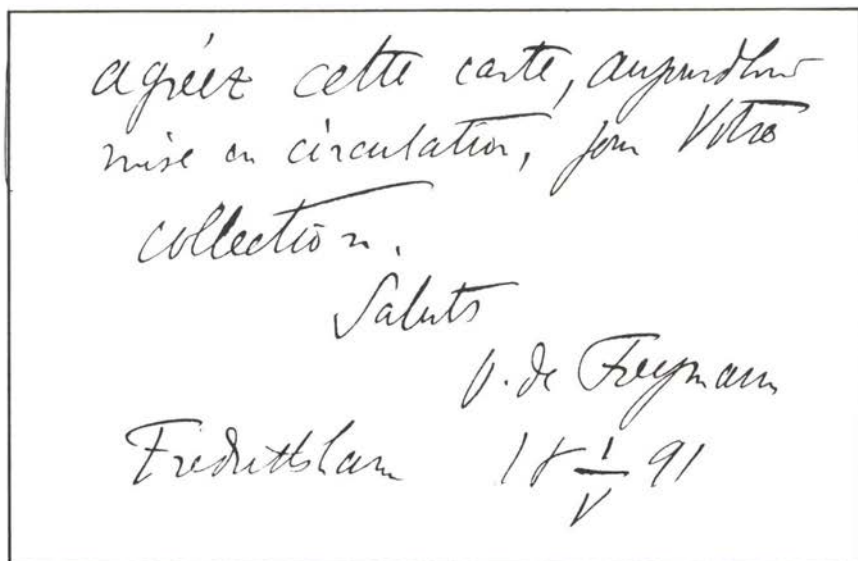 agréez cette carte, aujourdhui
mise en circulation, pour Votre
collection.
Saluts
v. de Freymann
Fredrikshamn 18 1/V 91